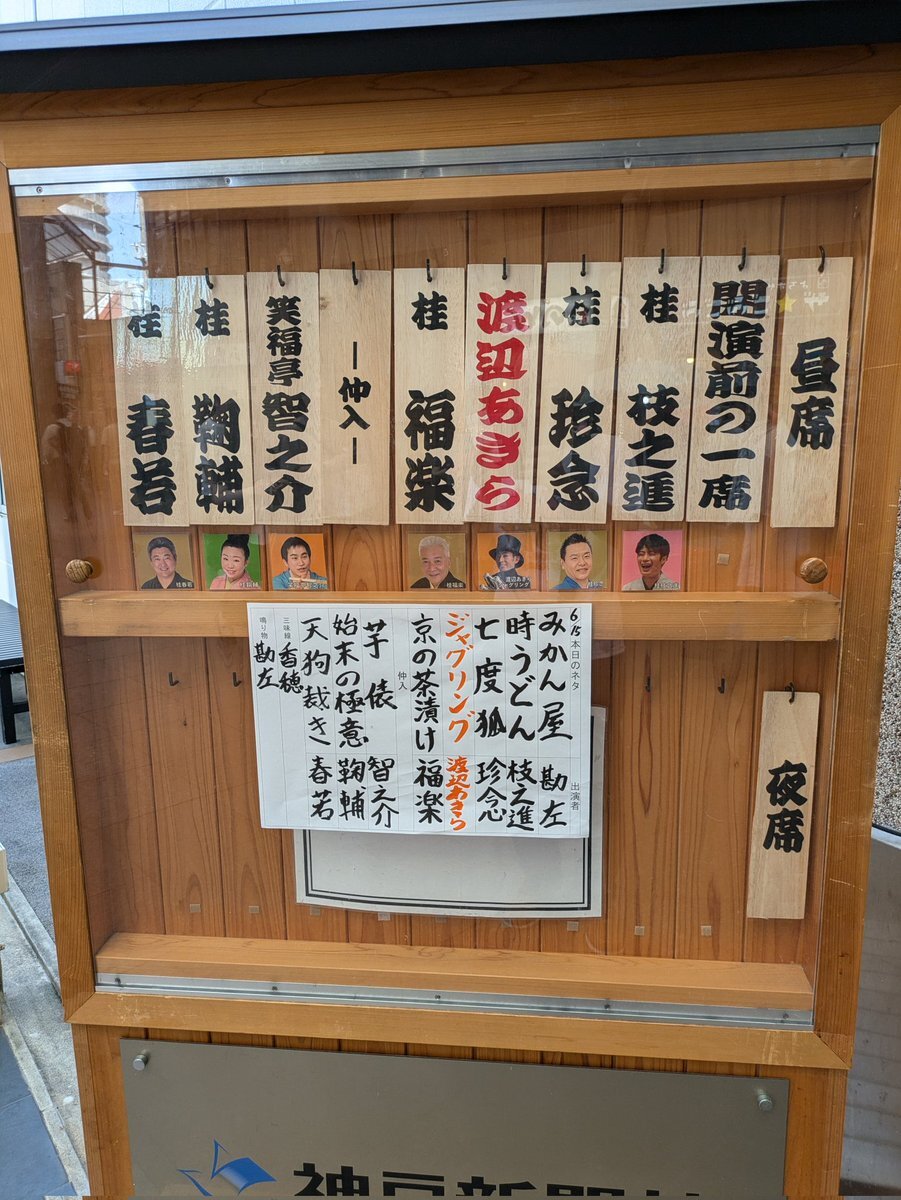 昼席
開演前の一席
桂 枝之進
桂 珍念
渡辺あきら
桂 福楽
ー仲入ー
笑福亭 智之介
桂 鞠輔
桂 春若
桂春若
桂鞠輔
桂福楽
渡辺あきら
ジャグリング
6/15 本日のネタ 出演者
みかん屋 勘左
時うどん 枝之進
七度狐 珍念
ジャグリング 渡辺あきら
京の茶漬け 福楽
仲入
芋俵 智之介
始末の極意 鞠輔
天狗裁き 春若
三味線 香穂
鳴り物 勘左
夜席
神戸新聞社